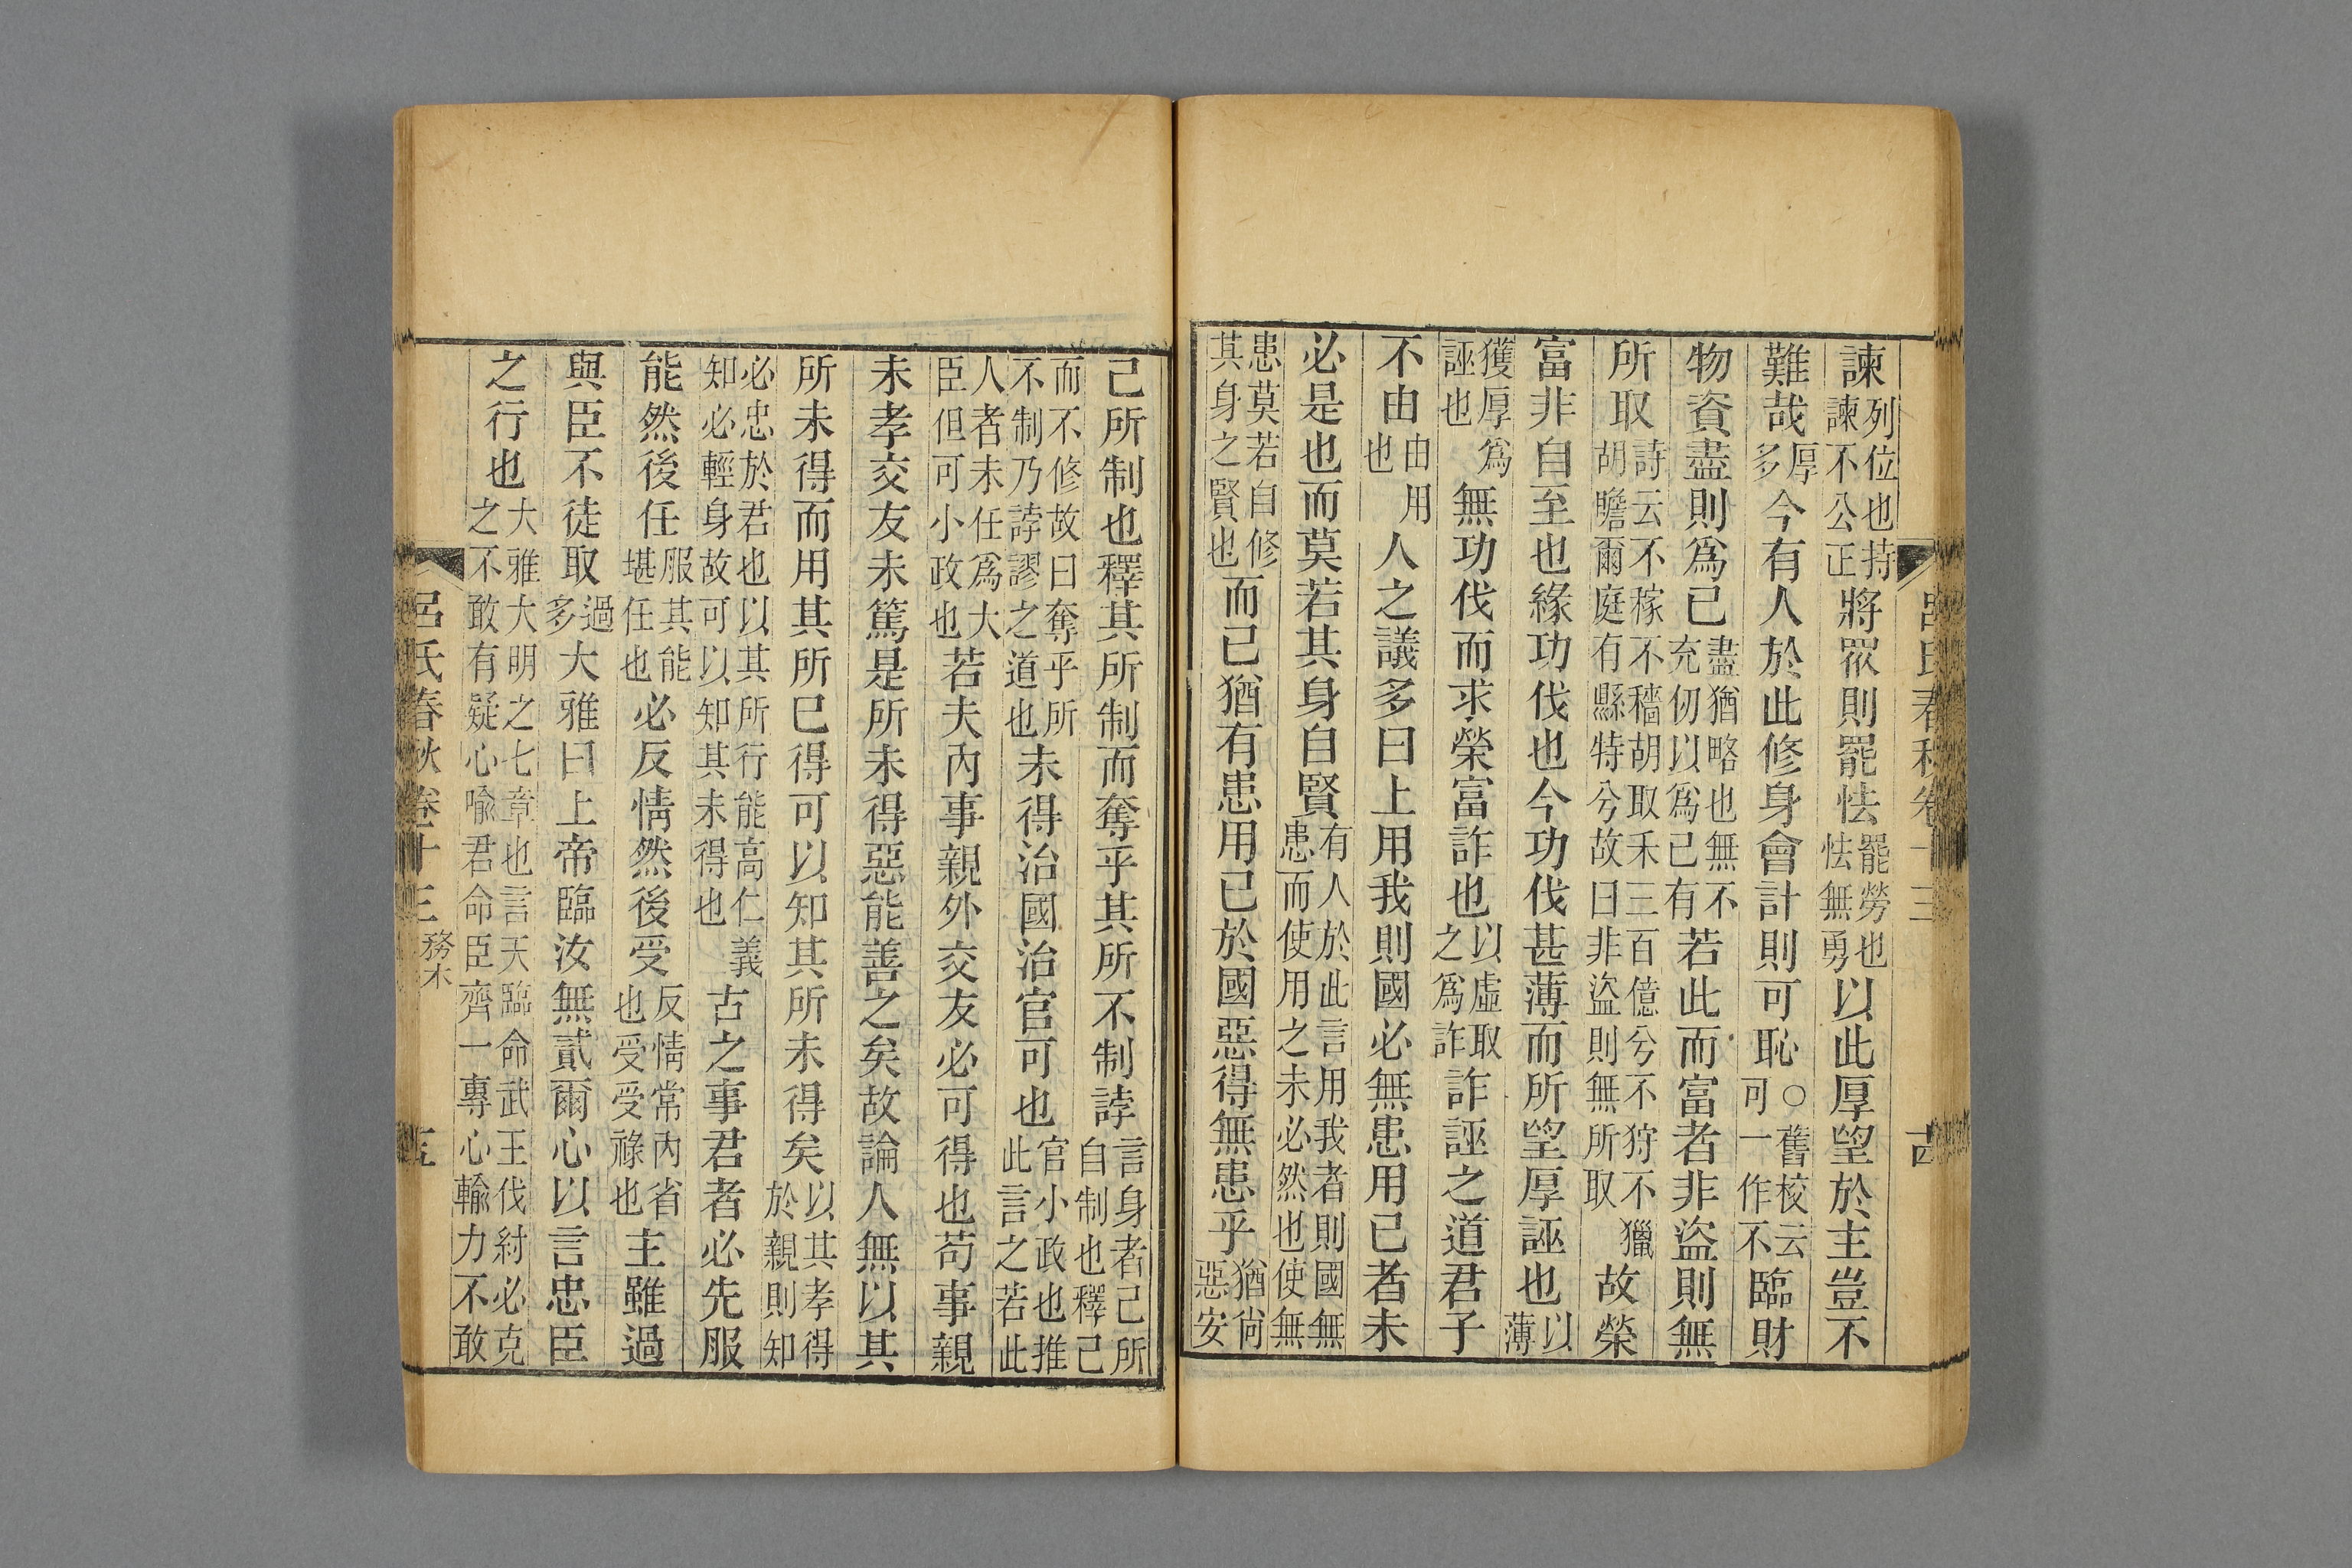 呂氏春秋卷十三
諫列位也持諫不公正將眾則罷怯罷勞也怯無勇以此厚望於主豈不
難哉厚多今有人於此修身會計則可恥○舊校云可一作不臨財
物資盡則爲己盡猶略也無不充仞以爲己有若此而富者非盜則無
所取詩云不稼不穡胡取禾三百億兮不狩不獵胡瞻爾庭有縣特兮故曰非盜則無所取故榮
富非自至也緣功伐也今功伐甚薄而所望厚誣也以薄
獲厚爲誣也無功伐而求榮富詐也以虛取之爲詐詐誣之道君子
不由由用也人之議多曰上用我則國必無患用己者未
必是也而莫若其身自賢有人於此言用我者則國無患而使用之未必然也使無
患莫若自修其身之賢也而己猶有患用己於國惡得無患乎猶尙惡安
己所制也釋其所制而奪乎其所不制誖言身者己所自制也釋己
而不修故曰奪乎所不制乃誖謬之道也未得治國治官可也官小政也推此言之若此
人者未任爲大臣但可小政也若夫內事親外交友必可得也苟事親
未孝交友未篤是所未得惡能善之矣故論人無以其
所未得而用其所已得可以知其所未得矣以其孝得於親則知
必忠於君也以其所行能高仁義知必輕身故可以知其未得也古之事君者必先服
能然後任服其能堪任也必反情然後受反情常內省也受受祿也主雖過
與臣不徒取過多大雅曰上帝臨汝無貳爾心以言忠臣
之行也大雅大明之七章也言天臨命武王伐紂必克之不敢有疑心喩君命臣齊一專心輸力不敢
呂氏春秋卷十三 務本